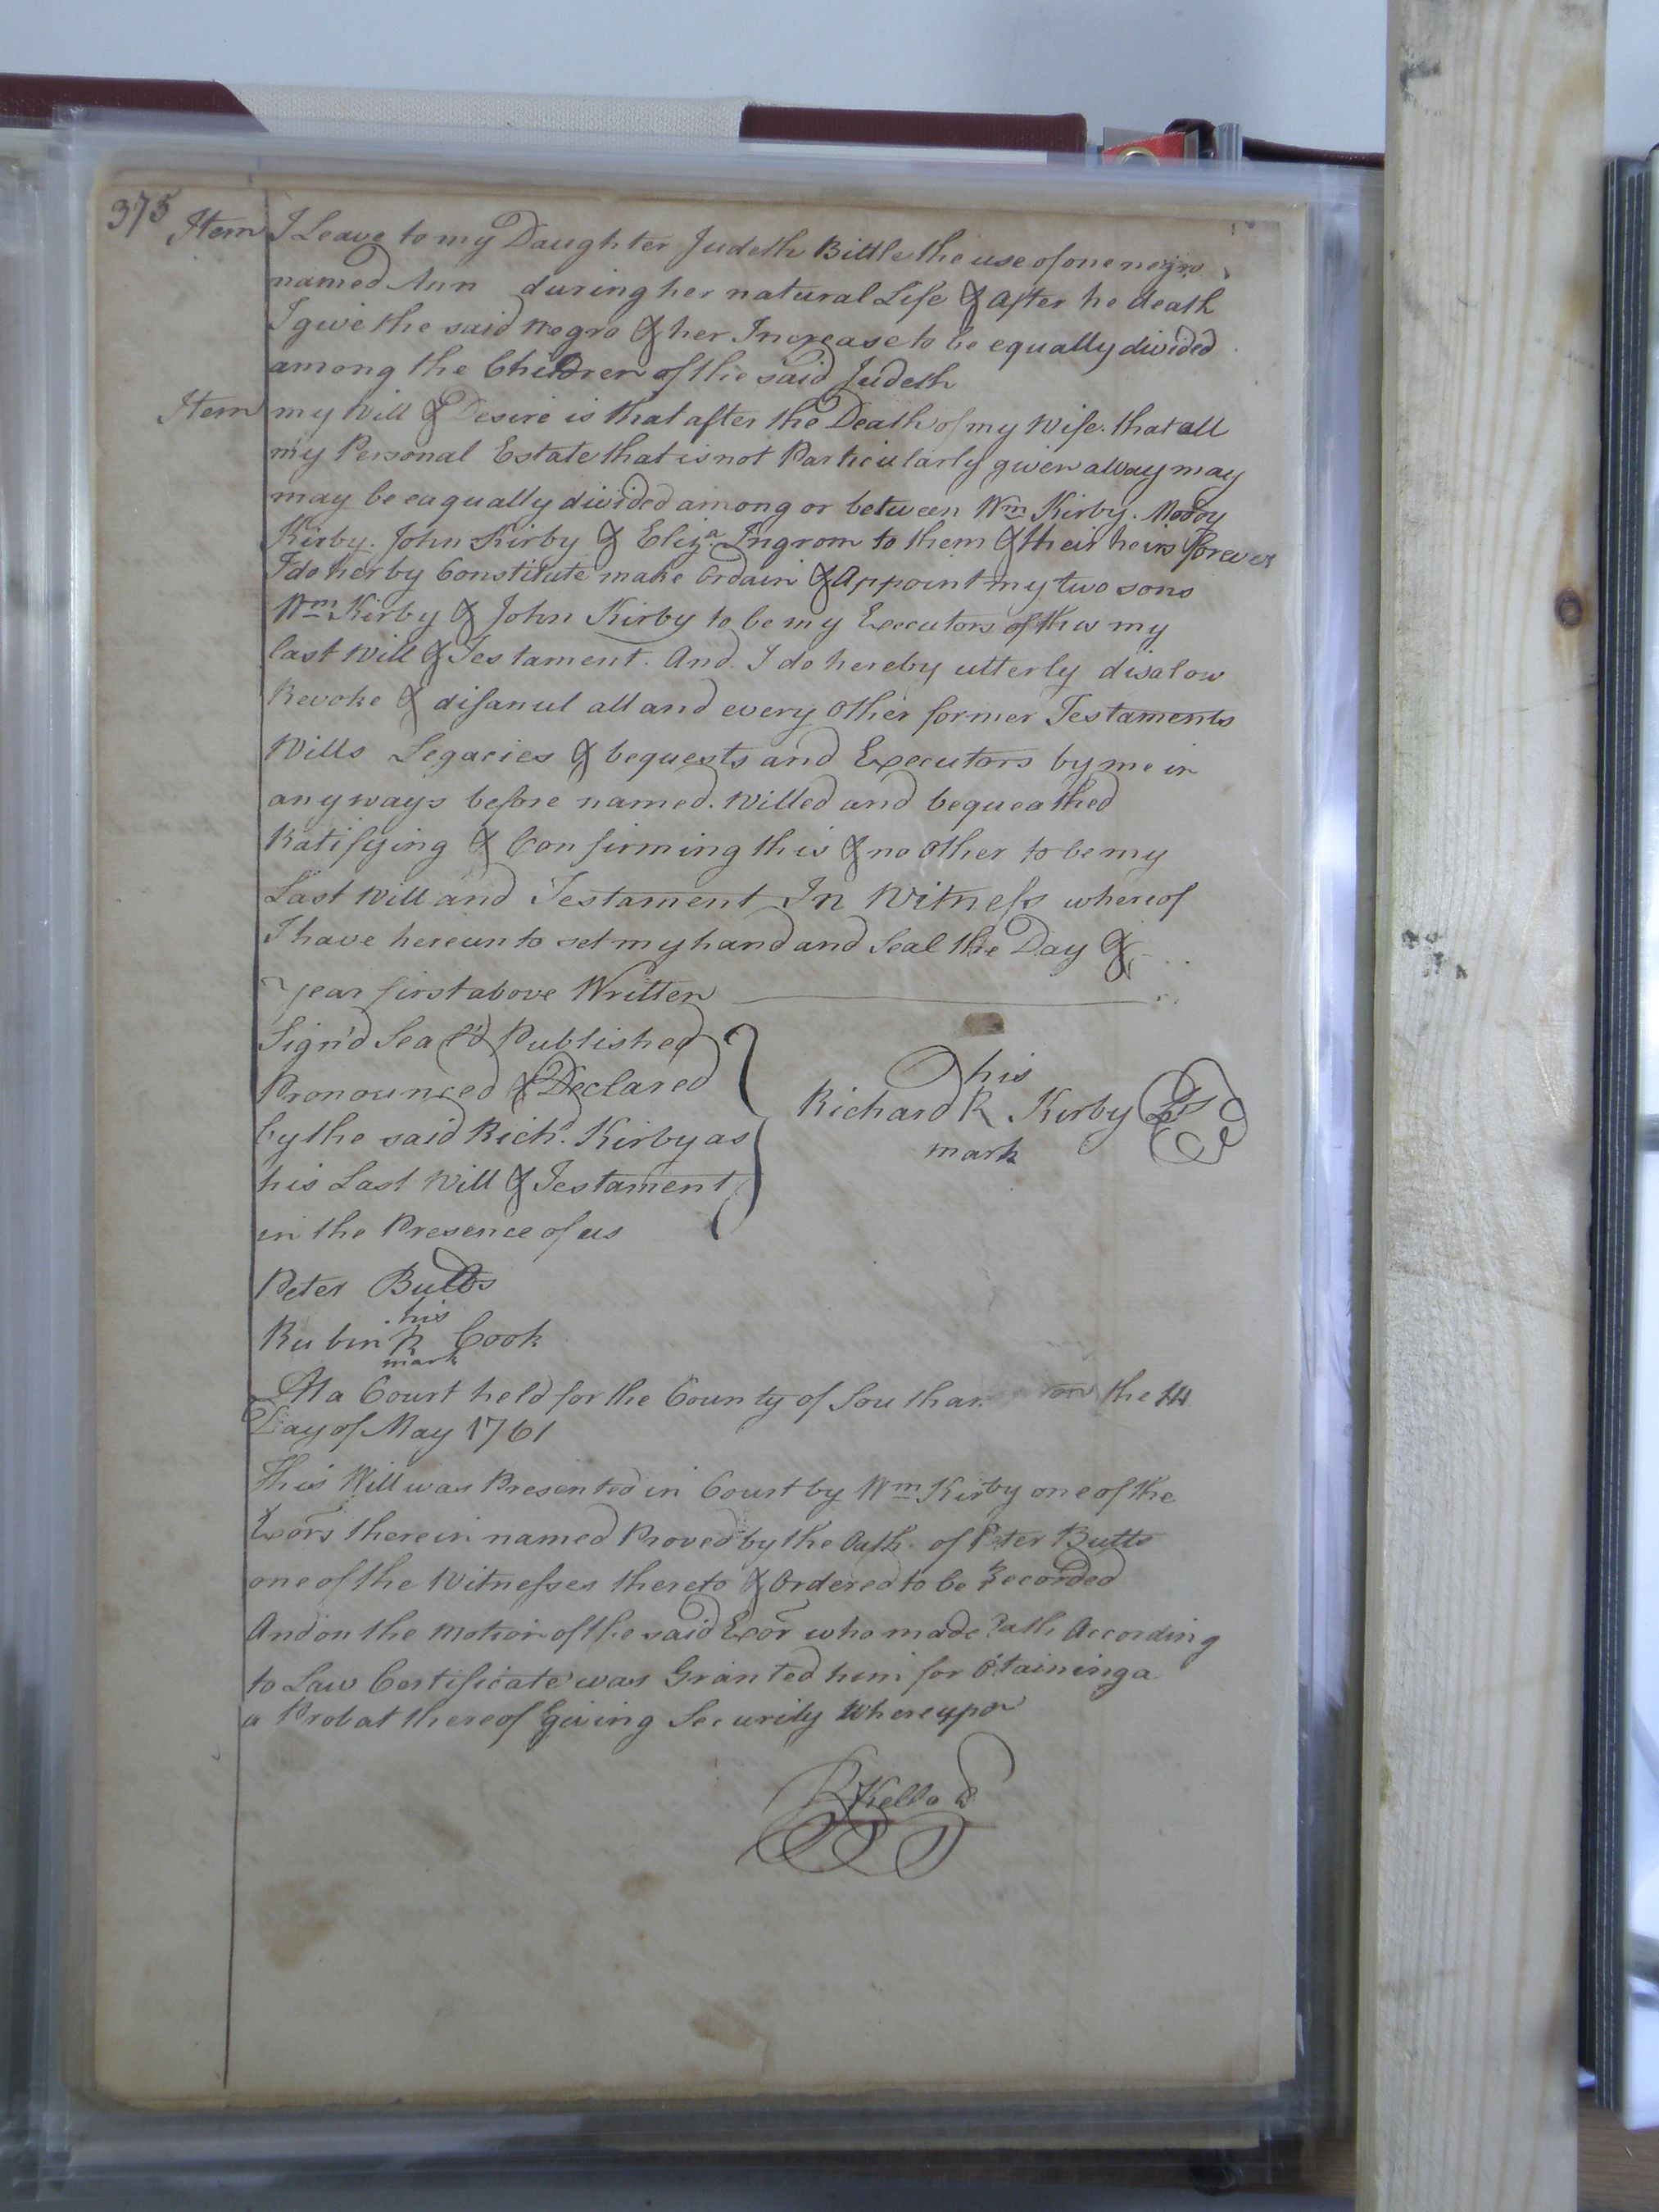 375
Item I Leave to my Daughter Judeth Bittle the use of one negro
named Ann during her natural Life & After he death
I give the said Negro & her Increase to be equally divided
among the Children of the said Judeth
Item my Will & Desire is that after the Death of my Wife. that all
my Personal Estate that is not Particularly given away may
may be euqually divided among or between Wm Kirby. Moody
Kirby. John Kirby & Eliza Ingrom to them & their heirs forever
I do herby Constitute make Ordain & Appoint my two sons
Wm Kirby & John Kirby to be my Executors of this my
last Will & Testament. And I do hereby utterly disalow
Revoke & disanul all and every other former Testaments
Wills Legacies & bequests and Executors by me in
any ways before named. Willed and bequeathed
Ratifying & Confirming this & no other to be my
Last Will and Testament In Witness whereof
I have hereunto set my hand and Seal the Day &
year first above Written
Sign'd Seal'd Published
Pronounced & Declared
by the said Richd. Kirby as
his Last Will & Testament
in the Presence of us
his
Richard R Kirby LS
mark
Peter Butts
his
Rubin R Cook
mark
At a Court held for the County of Southam on the 14
Day of May 1761
This Will was Presented in Court by Wm Kirby one of the
Exors therein named Proved by the Oath of Peter Butts
one of the Witnesses thereto & Ordered to be Recorded
And on the Motion of the said Exor who made Oath According
to Law Certificate was Granted him for Obtaining a
a Probat thereof giving Security Whereupon
R Kello